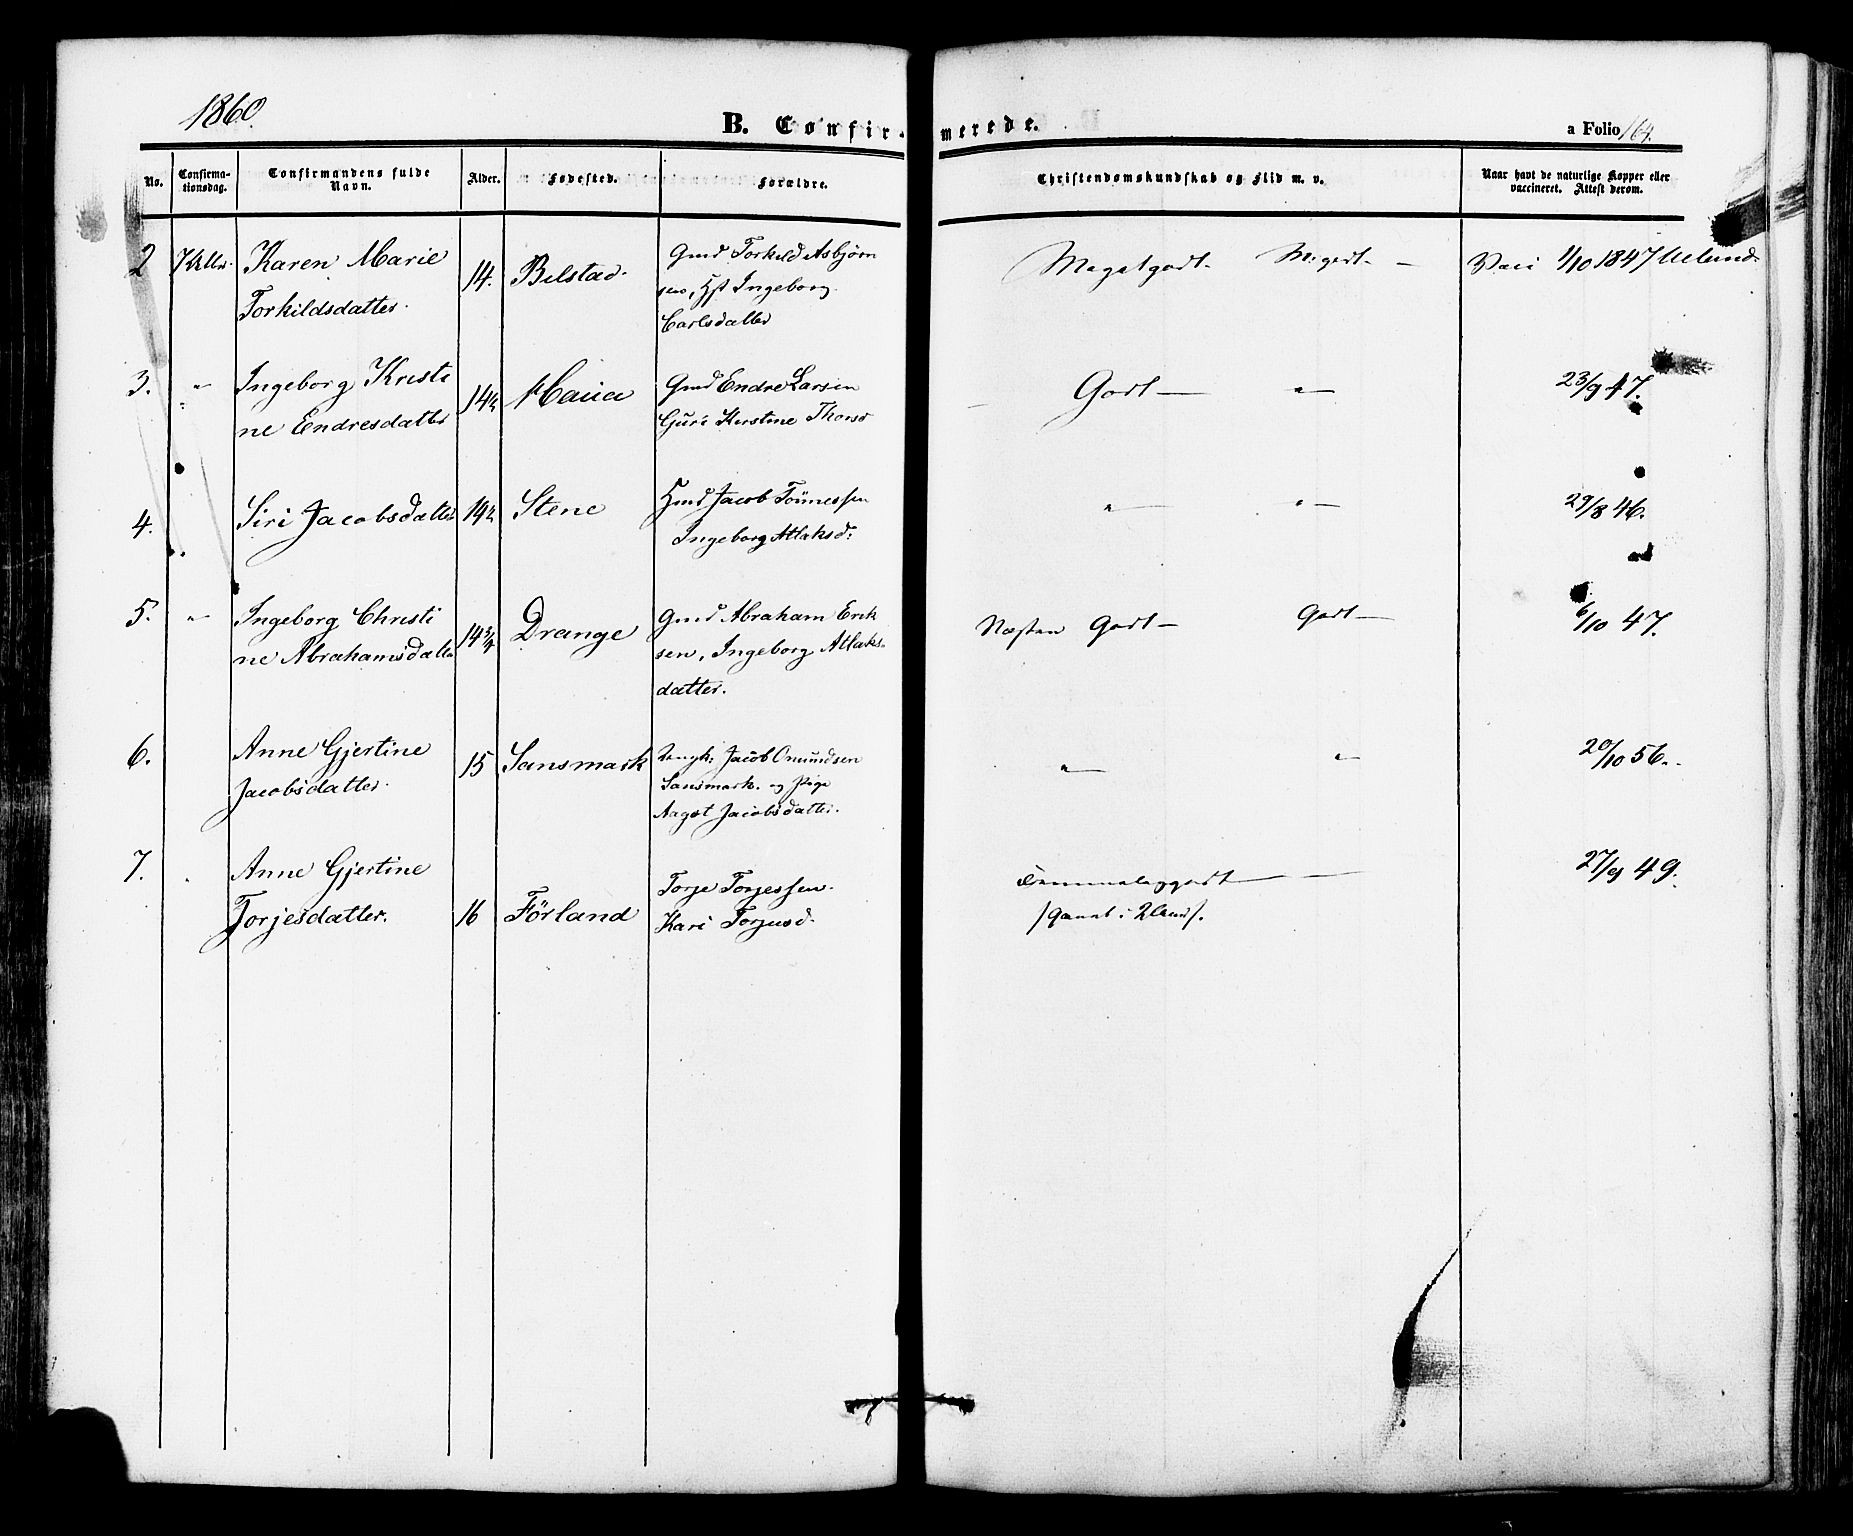 1860.
B. Confirmerede.
a Folio 164.
No.
Confirmationsdag.
Confirmandens fulde Navn.
Alder.
Fødested.
Forældre.
Christendomskundskab og Flid m. v.
Naar havt de naturlige Kopper eller vaccineret. Attest derom.
2 Karen Marie 14. Bilstad Gmd Torkild Asbjørn Megetgodt - M.godt - Vacc 1/10 1847
Torkildsdatter. sen, Hst Ingeborg
Carlsdatter
3. " Ingeborg Kristi 14½ Gmd Endre Larsen Godt - " - 23/9 47.
ne Endresdatter Guri Kirstine Thorsd
4. Siri Jacobsdatter 14½ Stene Hmd Jacob Tönnessen " - " - 29/8 46.
Ingeborg Atlaksd:
5. " Ingeborg Christi 14¾ Drange Gmd Abraham Erik Næsten Godt - Godt - 6/10 47.
ne Abrahamsdatter sen, Ingeborg Atlaks-
datter.
6. Anne Gjertine 15 Sansmark Ungk: Jacob Omundsen " - " - 20/10 56.
Jacobsdatter. Sansmark. og Pige
Aagot Jacobsdatter.
7. Anne Gjertine Torje Torjessen. 27/9 49.
Torjesdatter. 16 Förland Kari Torjusd.